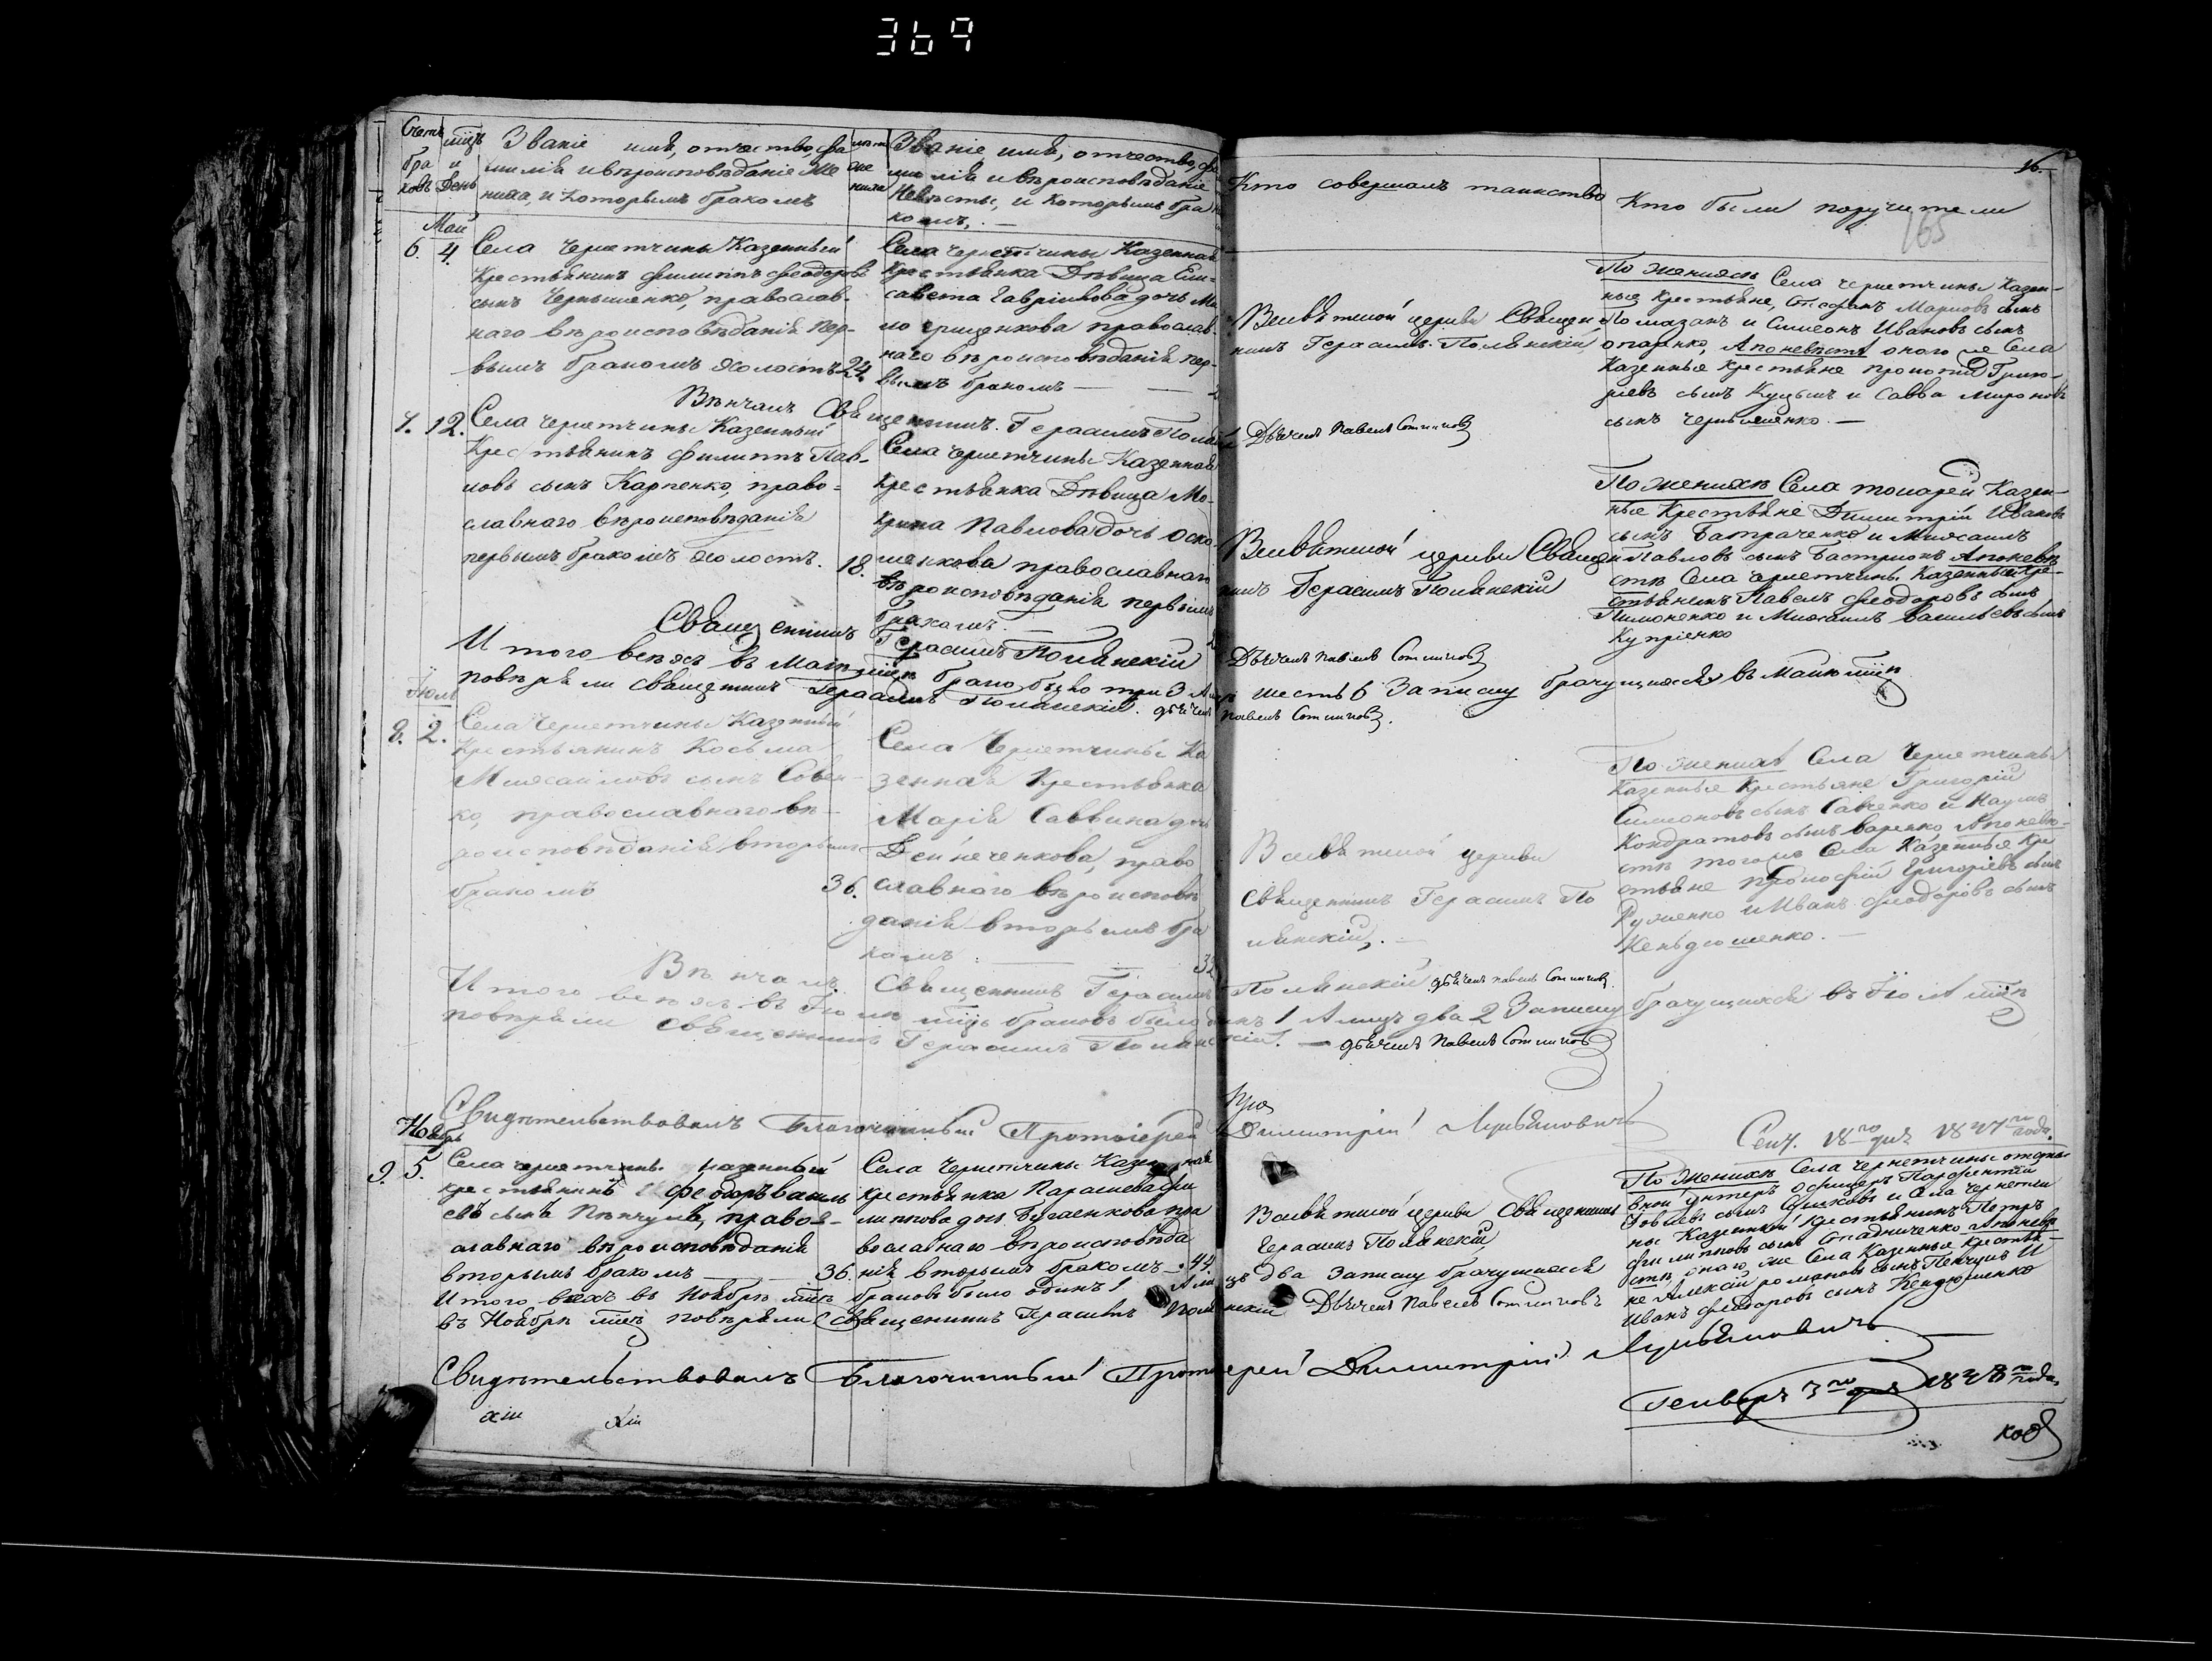 369
Счетъ бра ковъ
мцъ и День
Званіе имя, отчество, фа
милія и вѣроисповѣданіе Же
ниха, и которымъ бракомъ
лѣта же ниха
Званіе, имя, отчество, фа
милія и вѣроисповѣданіе
Невѣсты, и которымъ бра
комъ. —
Кто совершалъ таинство
Кто были поручители
16.
165
Май
6. 4.
Села Чернетчины Казенный
Крестьянинъ Филиппъ Феодоровъ
сынъ Чернышенко, православ-
наго вѣроисповѣданія пер-
вымъ бракомъ холостъ 24.
Села Чернетчины Казенная
Крестьянка Дѣвица Ели-
савета Гавріилова дочь Ми
рошниченкова православ-
наго вѣроисповѣданія пер-
вымъ бракомъ — —
Всивѣтлой церкви Священ
никъ Герасимъ Полянскій
По женихѣ Села Чернетчины Казен-
ные Крестьяне, Стефанъ Марковъ сынъ
Помазанъ и Симеонъ Ивановъ сынъ
опаренко, А по невѣстѣ оного же Села
Казенные Крестьяне Прокопій Григо-
рьевъ сынъ Куцынъ и Савва Мироновъ
сынъ Чернышенко. —
Вѣнчалъ Священникъ Герасимъ Полянскій
Дьячекъ Павелъ Сотниковъ
7. 12.
Села Чернетчины Казенный
Крестьянинъ Филиппъ Пав-
ловъ сынъ Карпенко, право-
славнаго вѣроисповѣданія
первымъ бракомъ холостъ. 18.
Села Чернетчины Казенная
крестьянка Дѣвица Мо-
крина Павлова дочь Оско
менкова православнаго
вѣроисповѣданія первымъ
бракомъ. —
Всивѣтлой церкви Священ
никъ Герасимъ Полянскій
По женихѣ Села токарей Казен-
ные Крестьяне Димитрій Ивановъ
сынъ Батраченко и Михаилъ
Павловъ сынъ Бастріонъ А по невѣ
стѣ Села Чернетчины Казенные Кре-
стьянинъ Павелъ Феодоровъ сынъ
Пимоненко и Михаилъ Васильевъ сынъ
Купріенко
Священникъ Герасимъ Полянскій
Дьячекъ Павелъ Сотниковъ
Итого всѣхъ въ Маѣ мцѣ брако было три 3 А лицъ шесть 6 Запись брачущихся въ Маѣ мцѣ
повѣряли священникъ Герасимъ Полянскій. дьячекъ Павелъ Сотниковъ.
Іюль
8. 2.
Села Чернетчины Казенный
Крестьянинъ Косьма
Михайловъ сынъ Совен-
ко, православнаго вѣ-
роисповѣданія вторымъ
бракомъ 36.
Села Чернетчины Ка
зенная Крестьянка
Марія Саввина дочь
Дейнеченкова, право
славнаго вѣроисповѣ
данія вторымъ бра
комъ. — — 32
Всивѣтлой церкви
Священникъ Герасимъ По
лянскій. —
По женихѣ Села Чернетчины
Казенные Крестьяне Григорій
Симоновъ сынъ Савченко и Наумъ
Кондратовъ сынъ Варенко А по невѣ-
стѣ тогожъ Села Казенные Кре
стьяне Прокофій Григоріевъ сынъ
Руженко и Иванъ Феодоровъ сынъ
Кеньдюшенко. —
Вѣнчалъ Священникъ Герасимъ Полянскій дьячекъ Павелъ Сотниковъ.
Итого всѣхъ въ Іюлѣ мцѣ браковъ было одинъ 1 А лицъ два 2 Запись брачущихся въ Іюлѣ мцѣ
повѣряли священникъ Герасимъ Полянскій. — дьячекъ Павелъ Сотниковъ
Свидѣтельствовалъ Благочинный Протоіерей Димитрій Лукьяновичъ
Сент. 18го дня 1847го года.
Ноябрь
9. 5.
Села Чернетчины Казенный
крестьянинъ Феодоръ Василь
евъ сынъ Пѣнчукъ, право-
славнаго вѣроисповѣданія
вторымъ бракомъ — 36.
Села Чернетчины Казенная
крестьянка Параскева Фи
липпова дочь Бугаенкова пра
вославнаго вѣроисповѣда
нія вторымъ бракомъ — 44
Всивѣтлой церкви Священникъ
Герасимъ Полянскій
По Женихѣ Села Чернетчины отстав
вной унтеръ Офицеръ Парфентій
сынъ и Села Чернетчи
ны Казенный Крестьянинъ Петръ
Филипповъ сынъ Спадниченко А по невѣ
стѣ оного же Села Казенные Крестья-
не Алексій Романовъ сынъ Пенчукъ И
Иванъ Феодоровъ сынъ Кендюшенко
Итого всѣхъ въ Ноябрѣ мцѣ браковъ было одинъ 1 А лицъ два Запись брачущихся
въ Ноябрѣ мцѣ повѣряли Священникъ Герасимъ Полянскій Дьячекъ Павелъ Сотниковъ
Свидѣтельствовалъ Благочинный Протоіерей Димитрій Лукьяновичъ
Генваря 3го дня 1848го года.